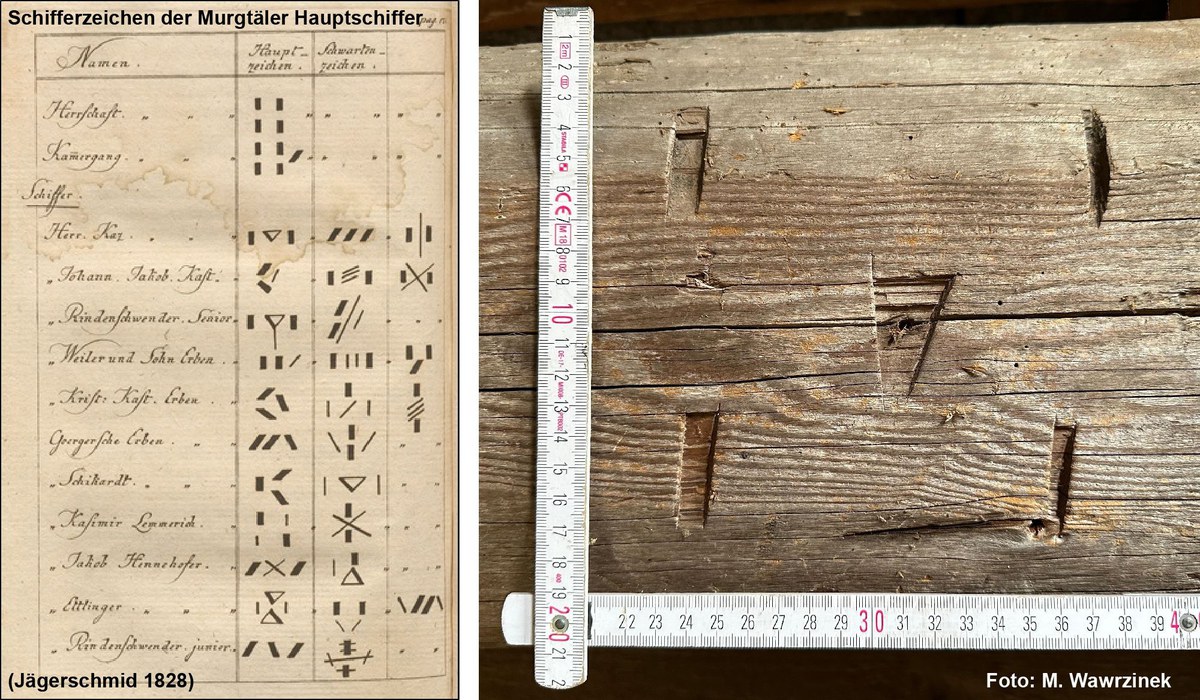 Schifferzeichen der Murgtäler Hauptschiffer
Namen.
Haupt-
zeichen.
Schwarten-
zeichen.
Herrschaft.
Kam̅ergang.
Schiffer.
Herr. Kaz
Johann. Jakob. Kast.
Rindenschwender. Senior.
Weiler und Sohn Erben.
Krist: Kast. Erben.
Goergersche Erben.
Schikardt.
Kasimir Lemmerich.
Jakob Hennehofer.
Ettinger.
Rindenschwender. junior.
(Jägerschmid 1828)
1
2m
2
3
4
STABILA
5
6
CE
7
M 18
0102
8
9
10
11
12
13
14
15
16
17
18
19
20
21
22 23 24 25 26 27 28 29 30 31 32 33 34 35 36 37 38 39 4
Foto: M. Wawrzinek